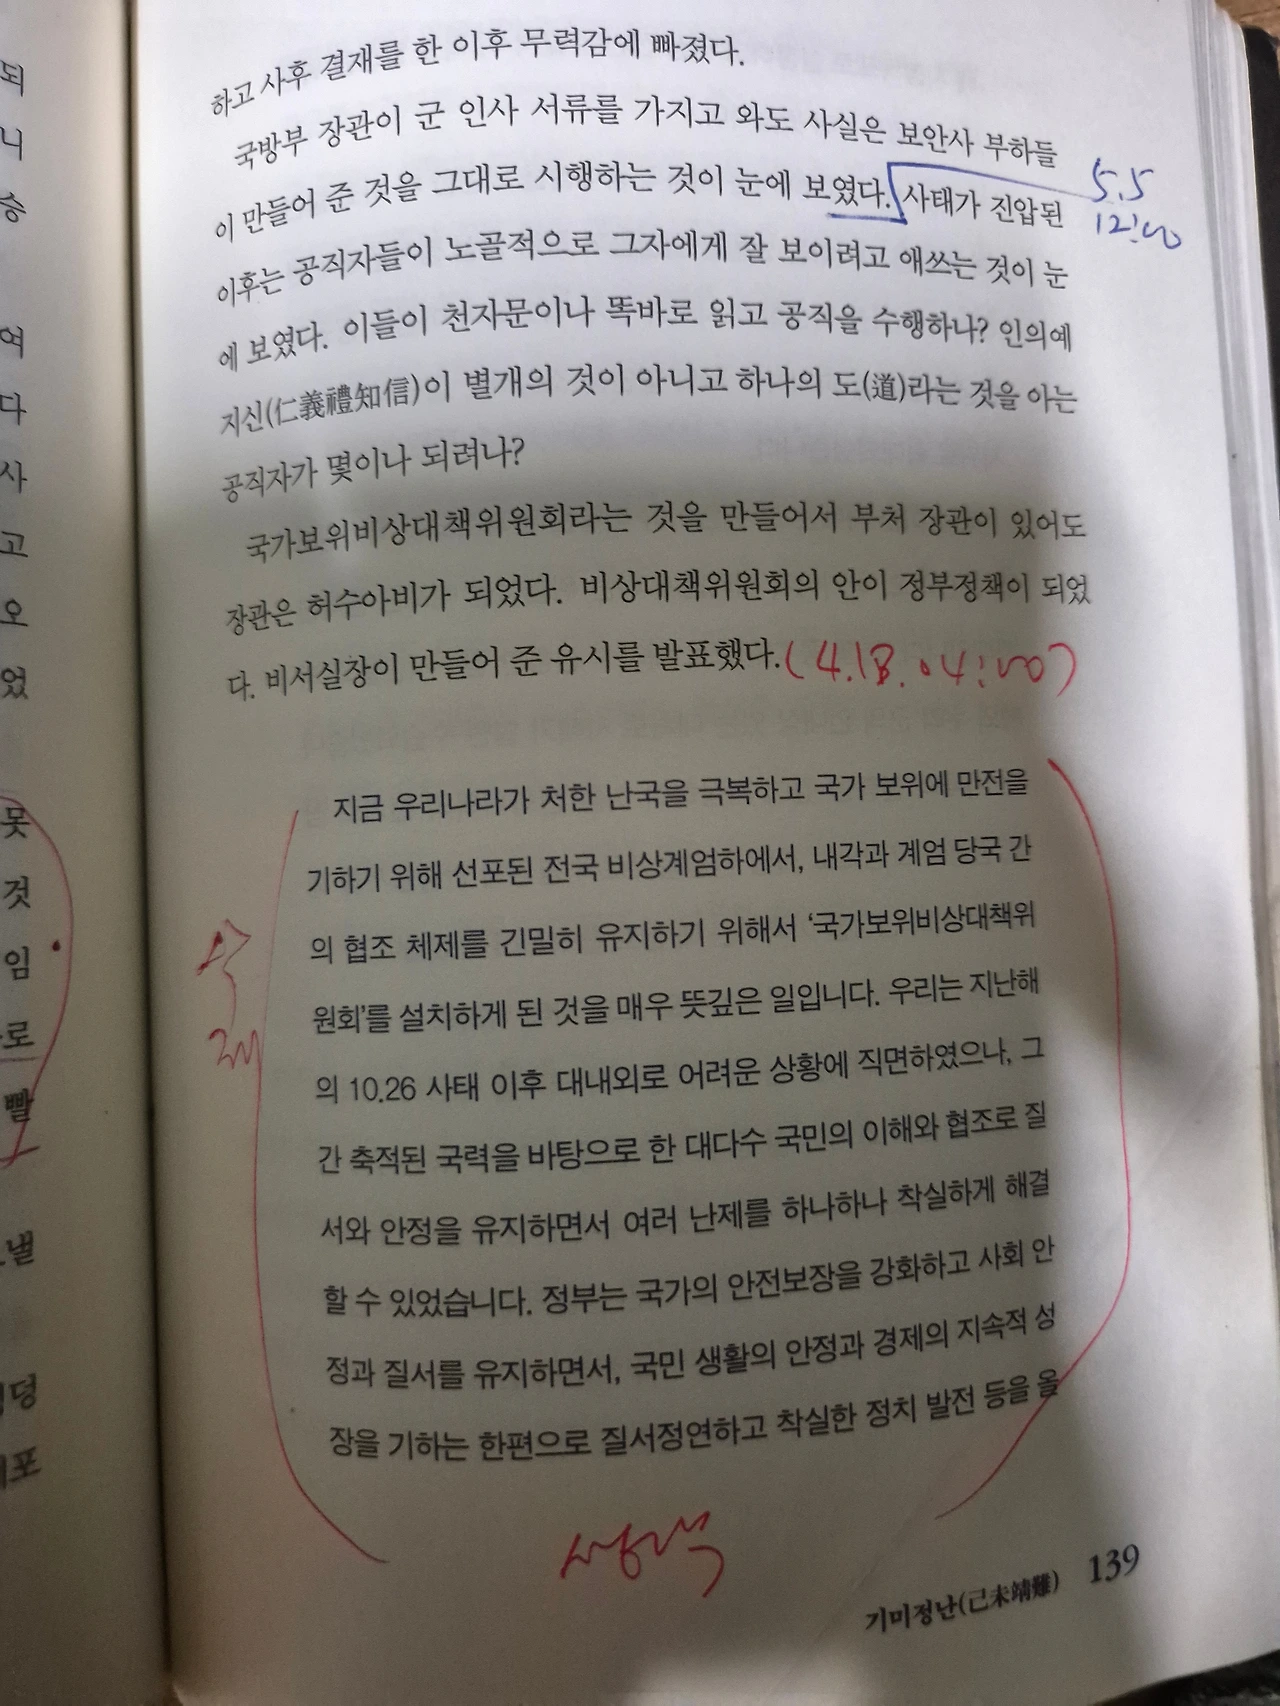 하고 사후 결재를 한 이후 무력감에 빠졌다.
국방부 장관이 군 인사 서류를 가지고 와도 사실은 보안사 부하들
이 만들어 준 것을 그대로 시행하는 것이 눈에 보였다. 사태가 진압된
5.5
12:00
이후는 공직자들이 노골적으로 그자에게 잘 보이려고 애쓰는 것이 눈
에 보였다. 이들이 천자문이나 똑바로 읽고 공직을 수행하나? 인의예
지신(仁義禮知信)이 별개의 것이 아니고 하나의 도(道)라는 것을 아는
공직자가 몇이나 되려나?
국가보위비상대책위원회라는 것을 만들어서 부처 장관이 있어도
장관은 허수아비가 되었다. 비상대책위원회의 안이 정부정책이 되었
다. 비서실장이 만들어 준 유시를 발표했다. (4.18. 04:00)
지금 우리나라가 처한 난국을 극복하고 국가 보위에 만전을
기하기 위해 선포된 전국 비상계엄하에서, 내각과 계엄 당국 간
의 협조 체제를 긴밀히 유지하기 위해서 ‘국가보위비상대책위
원회’를 설치하게 된 것을 매우 뜻깊은 일입니다. 우리는 지난해
의 10.26 사태 이후 대내외로 어려운 상황에 직면하였으나, 그
간 축적된 국력을 바탕으로 한 대다수 국민의 이해와 협조로 질
서와 안정을 유지하면서 여러 난제를 하나하나 착실하게 해결
할 수 있었습니다. 정부는 국가의 안전보장을 강화하고 사회 안
정과 질서를 유지하면서, 국민 생활의 안정과 경제의 지속적 성
장을 기하는 한편으로 질서정연하고 착실한 정치 발전 등을 올
생략
기미정난(己未靖難) 139